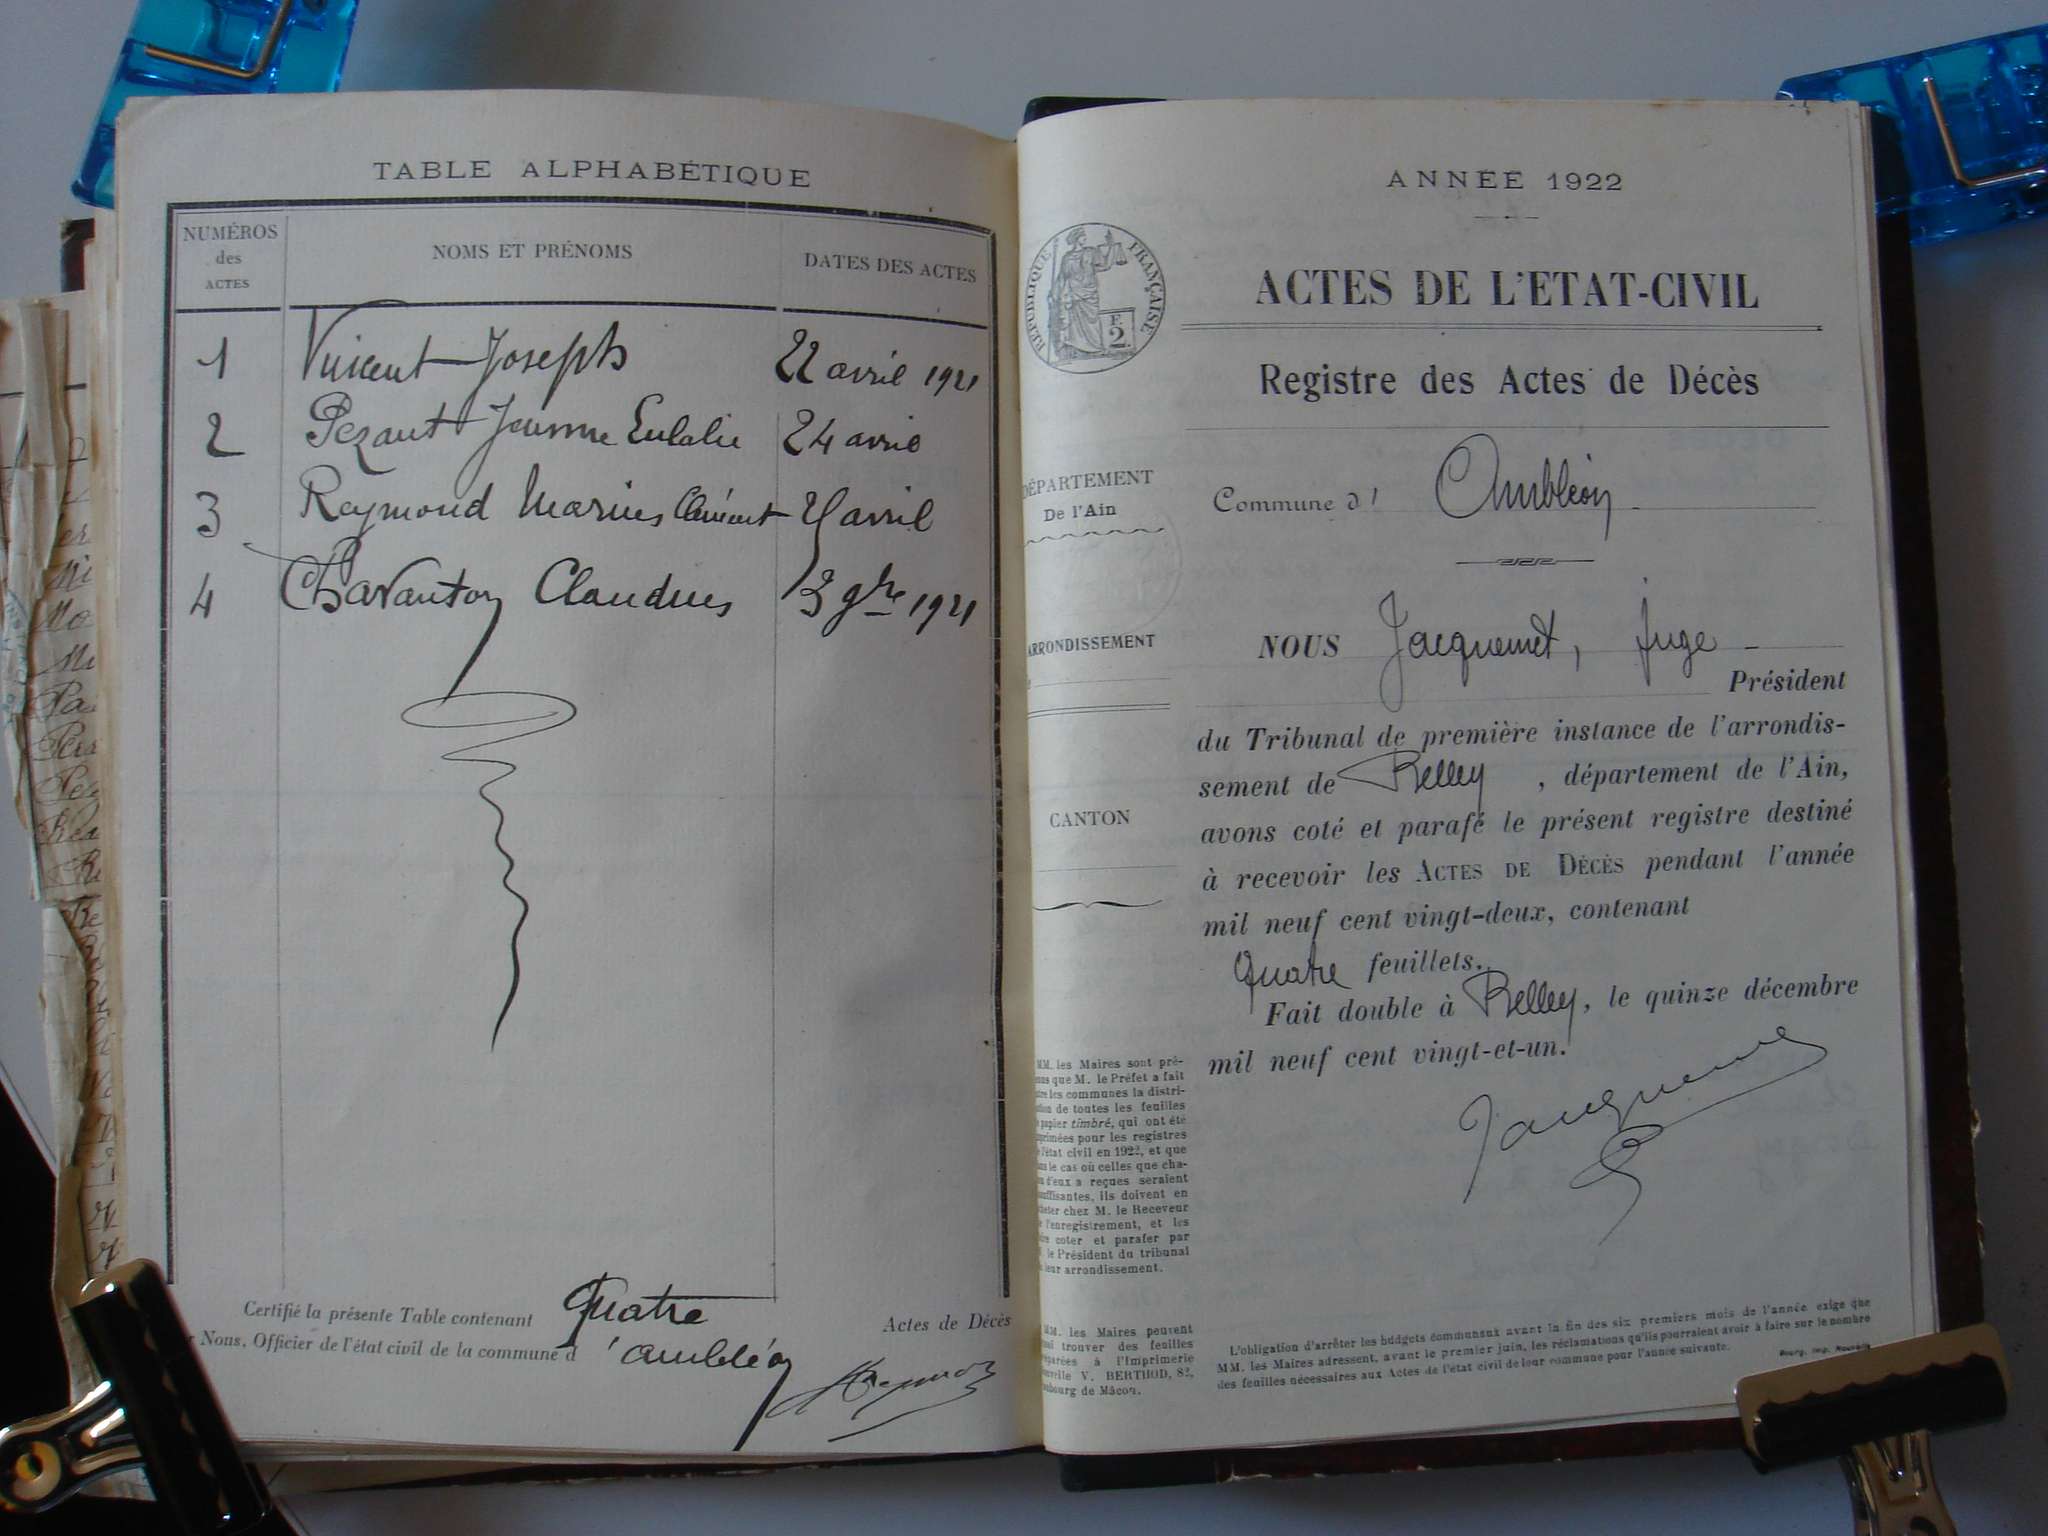 TABLE ALPHABÉTIQUE
NUMÉROS des ACTES
NOMS ET PRÉNOMS
DATES DES ACTES
1 Vincent Joseph 22 avril 1921
2 Pezant Jeanne Eulalie 24 avril
3 Reymond Marius Clément avril
4 Chavanton Claudius 3 9bre 1921
Certifié la présente Table contenant Quatre Actes de Décès
Nous, Officier de l'état civil de la commune d'Ambléon
ANNÉE 1922
RÉPUBLIQUE FRANÇAISE
F. 2
ACTES DE L'ETAT-CIVIL
Registre des Actes de Décès
DÉPARTEMENT
De l'Ain
Commune d' Ambléon
ARRONDISSEMENT
CANTON
NOUS Jacquemet, juge
Président
du Tribunal de première instance de l'arrondis-
sement de Belley, département de l'Ain,
avons coté et parafé le présent registre destiné
à recevoir les ACTES DE DÉCÈS pendant l'année
mil neuf cent vingt-deux, contenant
Quatre feuillets.
Fait double à Belley, le quinze décembre
mil neuf cent vingt-et-un.
MM. les Maires sont pré-
que M. le Préfet a fait
les communes la distri-
de toutes les feuilles
papier timbré, qui ont été
pour les registres
l'état civil en 1922, et que
le cas où celles que cha-
d'eux a reçues seraient
ils doivent en
chez M. le Receveur
l'enregistrement, et les
coter et parafer par
le Président du tribunal
leur arrondissement.
MM. les Maires peuvent
trouver des feuilles
à l'Imprimerie
V. BERTHOD, 82,
de Mâcon.
L'obligation d'arrêter les budgets communaux avant la fin des six premiers mois de l'année exige que
MM. les Maires adressent, avant le premier juin, les réclamations qu'ils pourraient avoir à faire sur le nombre
des feuilles nécessaires aux Actes de l'état civil de leur commune pour l'année suivante.
Bourg, Imp. Nouvelle